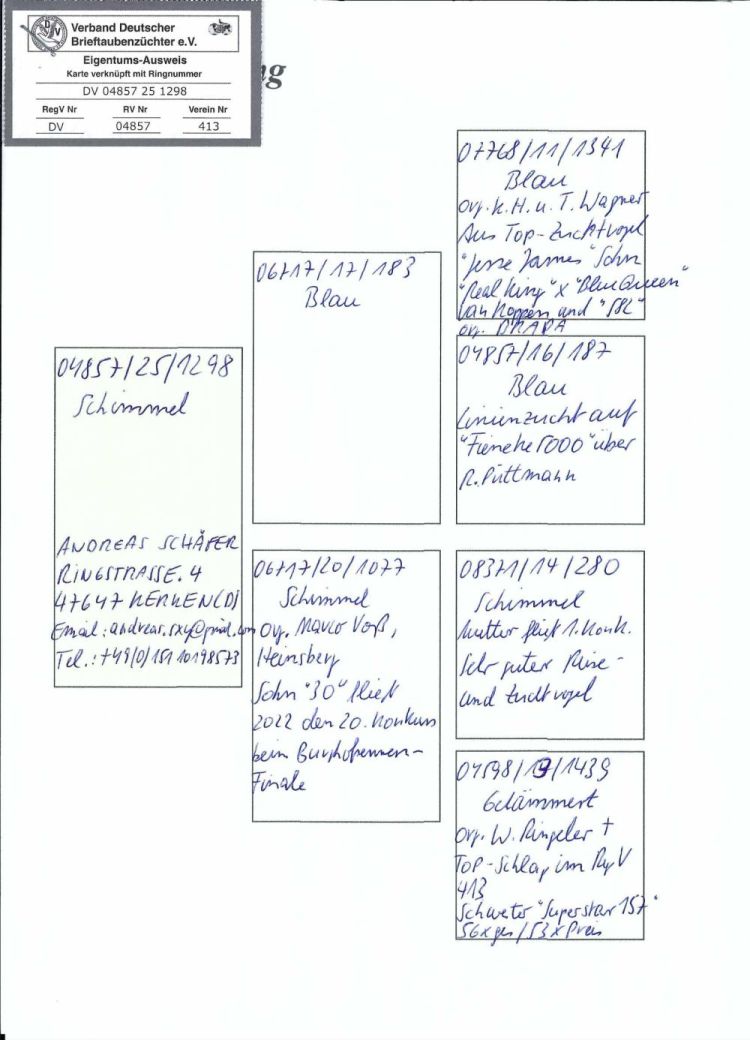 Verband Deutscher
Brieftaubenzüchter e.V.
Eigentums-Ausweis
Karte verknüpft mit Ringnummer
DV 04857 25 1298
RegV Nr RV Nr Verein Nr
DV 04857 413
04857/25/1298
Schimmel
ANDREAS SCHÄFER
RINGSTRASSE. 4
47647 KERKEN(D)
Email: andreas.
Tel.: +49(0)151 10198573
06717/17/183
Blau
06717/20/1077
Schimmel
Org. Marco Voß,
Heinsberg
Sohn "30" fliegt
2022 den 20. Konkurs
beim
Finale
07768/11/1341
Blau
Org. K. H. u. T. Wagner
Aus Top-Zuchtvogel
"Jesse James" Sohn
"Real King" x "Blue Queen"
van Koppen und "582"
org. DRAPA
04857/16/187
Blau
Linienzucht auf
"Fieneke 5000" über
R. Püttmann
08371/14/280
Schimmel
Mutter fliegt 1. Konk.
Sehr guter Reise-
und Zuchtvogel
04598/19/1439
Gehämmert
Org. W. Ringeler †
TOP-Schlag im RegV
413
Schwester "Superstar 157"
56x ges/53x Preis